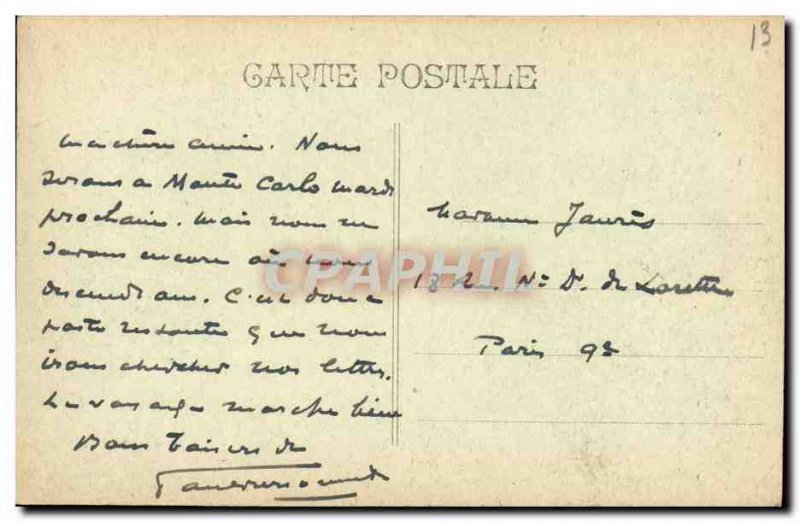 13
CARTE POSTALE
Ma chère amie. Nous
serons a Monte Carlo mardi
prochain. Mais nous ne
savons encore où nous
descendrons. C'est donc a
poste restante que nous
irons chercher nos lettres.
Le voyage marche bien
Bons baisers de
Madame Jaurès
18 R. N. D. de Lorette
Paris 9e
CPAPHIL